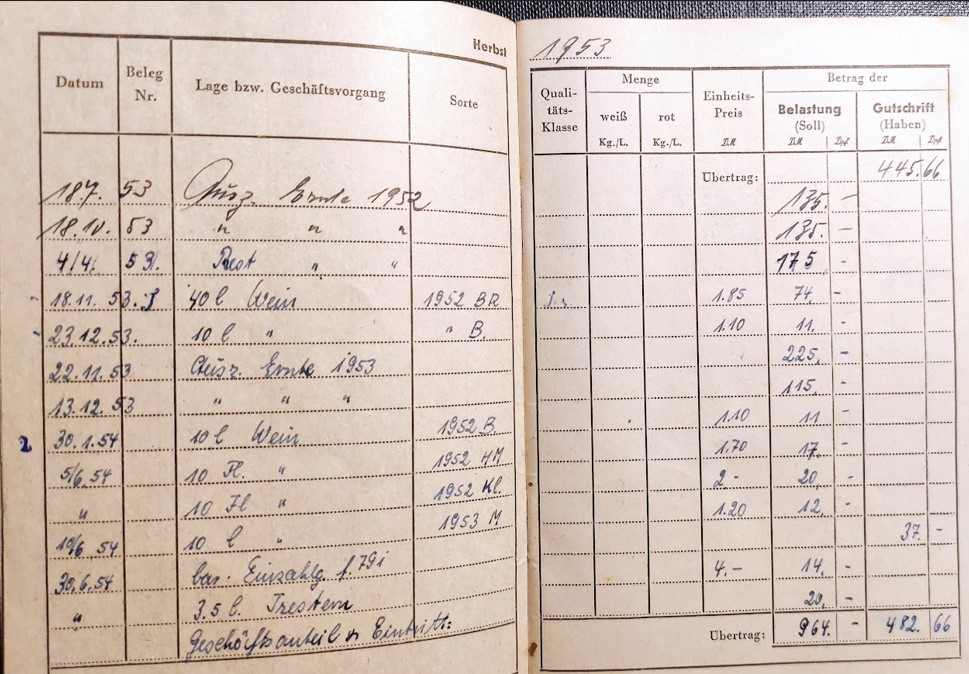 Herbst
1953
Datum
Beleg Nr.
Lage bzw. Geschäftsvorgang
Sorte
Quali-
täts-
Klasse
Menge
weiß
Kg./L.
rot
Kg./L.
Einheits-
Preis
DM
Betrag der
Belastung
(Soll)
DM Dpf
Gutschrift
(Haben)
DM Dpf
Übertrag: 445.66
18.7. 53 Ausz. Ernte 1952 135. –
18.10. 53 " " " 135. –
Rest " " 175 –
18.11. 53. 40 l Wein 1952 BR 1.85 74 –
23.12.53. 10 l " " B. 1.10 11. –
22.11.53 Ausz. Ernte 1953 225. –
13.12.53 " " " 115. –
2 30.1.54 10 l Wein 1952 B 1.10 11 –
5/6.54 10 Fl. " 1952 1.70 17. –
" 10 Fl " 1952 Kl. 2 - 20. –
10/6 54 10 l " 1953 M 1.20 12. –
30.6.54 bar. Einzahlg. 37. –
" 3.5 l. Trestern 4.– 14. –
Geschäftsanteil Eintritt: 20. –
Übertrag: 964. – 482. 66